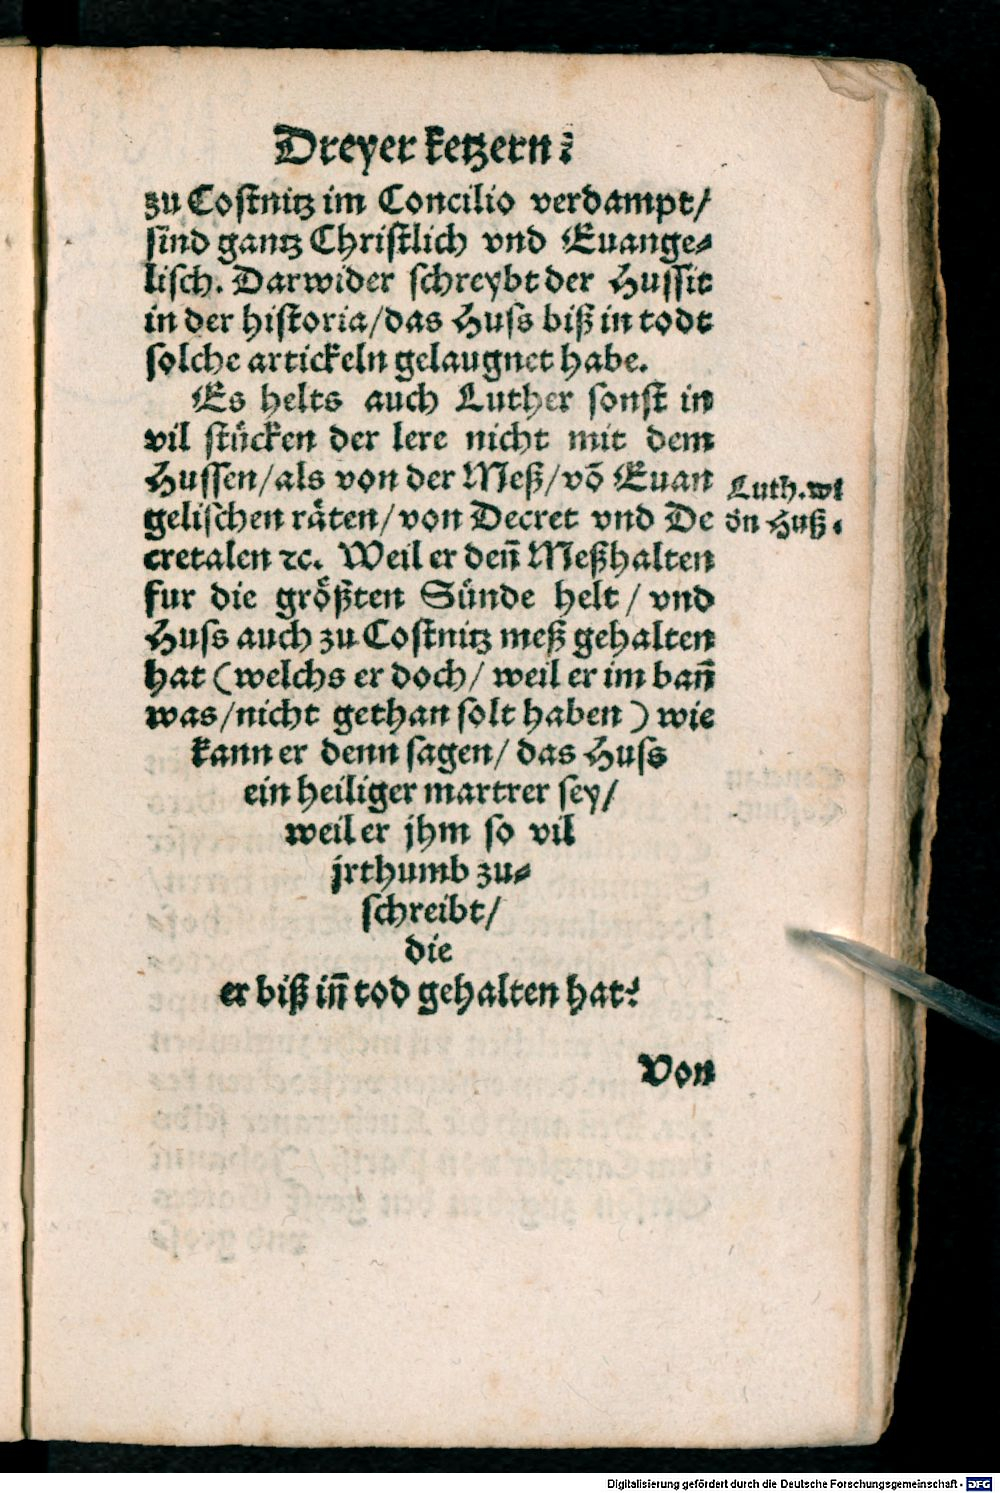 Dreyer ketzern.
zu Costnitz im Concilio verdampt/
sind gantz Christlich vnd Euange⸗
lisch. Darwider schreybt der Hussit
in der historia/das Huss biß in todt
solche artickeln gelaugnet habe.
Es helts auch Luther sonst in
vil stücken der lere nicht mit dem
Hussen/als von der Meß/võ Euan
gelischen räten/von Decret vnd De
cretalen ꝛc. Weil er deñ Meßhalten
fur die größten Sünde helt/ vnd
Huss auch zu Costnitz meß gehalten
hat (welchs er doch/ weil er im bañ
was/nicht gethan solt haben) wie
kann er denn sagen/ das Huss
ein heiliger martrer sey/
weil er jhm so vil
jrthumb zu⸗
schreibt/
die
er biß iñ tod gehalten hat?
Luth. wi
dn Huß.
Von
Digitalisierung gefördert durch die Deutsche Forschungsgemeinschaft - DFG